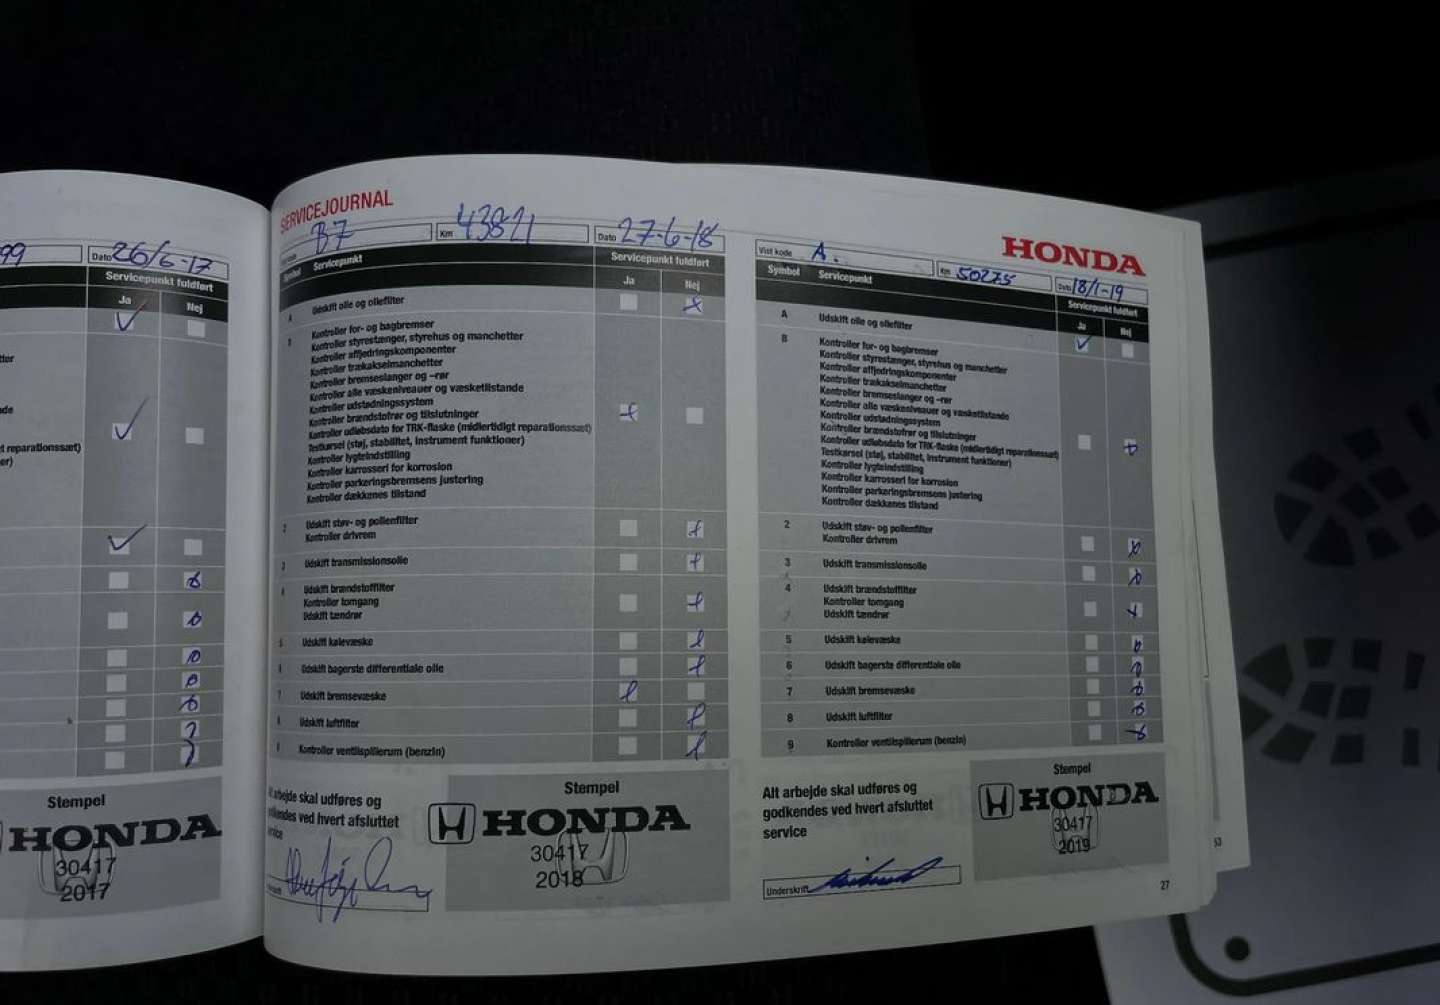 99
Dato 26/6-17
Servicepunkt fuldført
Ja
Nej
reparationssæt)
Stempel
HONDA
30417
2017
SERVICEJOURNAL
B7
Km 43821
Dato 27-6-18
Symbol
Servicepunkt
Servicepunkt fuldført
Ja
Nej
Udskift olie og oliefilter
Kontroller for- og bagbremser
Kontroller styrestænger, styrehus og manchetter
Kontroller affjedringskomponenter
Kontroller trækakselmanchetter
Kontroller bremseslanger og –rør
Kontroller alle væskeniveauer og væsketilstande
Kontroller udstødningssystem
Kontroller brændstofrør og tilslutninger
Kontroller udløbsdato for TRK-flaske (midlertidigt reparationssæt)
Testkørsel (støj, stabilitet, instrument funktioner)
Kontroller lygteindstilling
Kontroller karrosseri for korrosion
Kontroller parkeringsbremsens justering
Kontroller dækkenes tilstand
2 Udskift støv- og pollenfilter
Kontroller drivrem
3 Udskift transmissionsolie
Udskift brændstoffilter
Kontroller tomgang
Udskift tændrør
5 Udskift kølevæske
Udskift bagerste differentiale olie
7 Udskift bremsevæske
Udskift luftfilter
Kontroller ventilspillerum (benzin)
Alt arbejde skal udføres og
godkendes ved hvert afsluttet
service
Stempel
HONDA
30417
2018
HONDA
Vist kode A.
Km 50275
Dato 18/1-19
Symbol
Servicepunkt
Servicepunkt fuldført
Ja
Nej
A Udskift olie og oliefilter
B Kontroller for- og bagbremser
Kontroller styrestænger, styrehus og manchetter
Kontroller affjedringskomponenter
Kontroller trækakselmanchetter
Kontroller bremseslanger og –rør
Kontroller alle væskeniveauer og væsketilstande
Kontroller udstødningssystem
Kontroller brændstofrør og tilslutninger
Kontroller udløbsdato for TRK-flaske (midlertidigt reparationssæt)
Testkørsel (støj, stabilitet, instrument funktioner)
Kontroller lygteindstilling
Kontroller karosseri for korrosion
Kontroller parkeringsbremsens justering
Kontroller dækkenes tilstand
2 Udskift støv- og pollenfilter
Kontroller drivrem
3 Udskift transmissionsolie
4 Udskift brændstoffilter
Kontroller tomgang
Udskift tændrør
5 Udskift kølevæske
6 Udskift bagerste differentiale olie
7 Udskift bremsevæske
8 Udskift luftfilter
9 Kontroller ventilspillerum (benzin)
Alt arbejde skal udføres og
godkendes ved hvert afsluttet
service
Underskrift
Stempel
HONDA
30417
2019
27
53